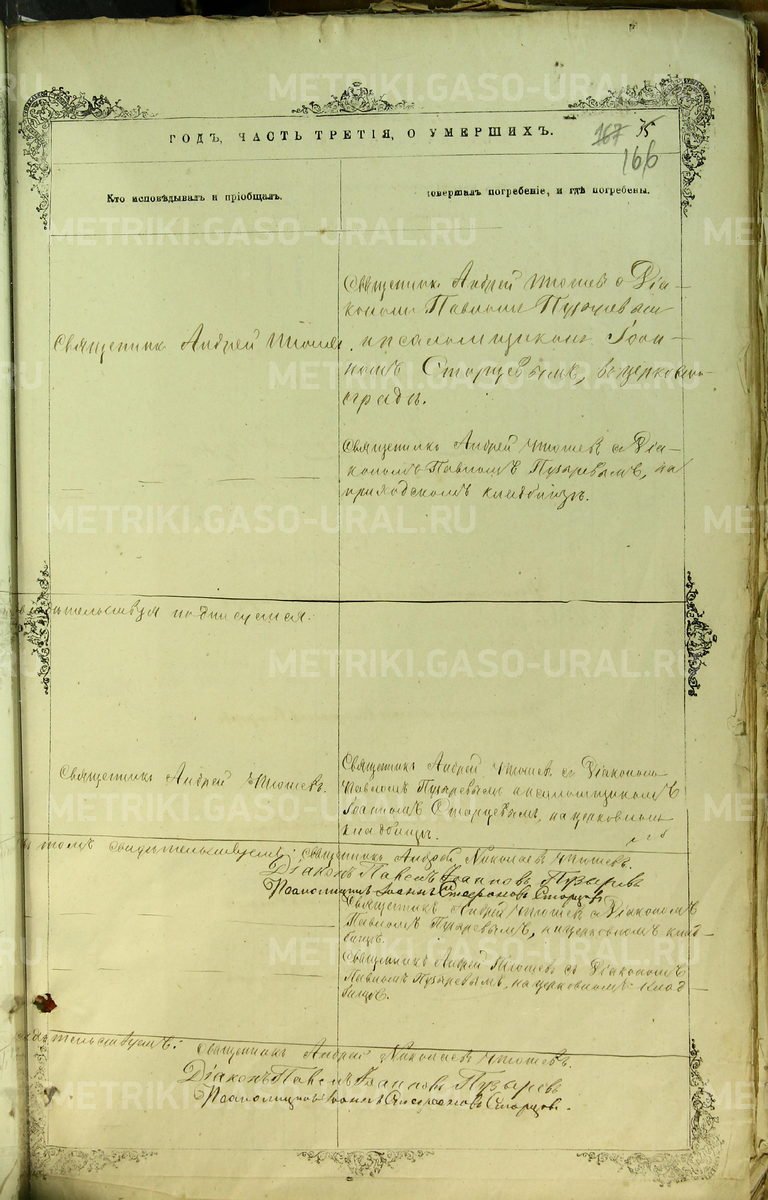 ГОДЪ, ЧАСТЬ ТРЕТІЯ, О УМЕРШИХЪ.
167 35
166
Кто исповѣдывалъ и пріобщалъ.
совершалъ погребеніе, и гдѣ погребены.
Священникъ Андрей
Священникъ Андрей с Діа-
кономъ Павломъ Пузыревым
псаломщикомъ Іоан-
номъ Старцевымъ, въ церковно-
оградѣ.
Священникъ Андрей съ Діа-
кономъ Павломъ Пузыревымъ, на
приходскомъ кладбищѣ.
подписуемся:
Священникъ Андрей
Священникъ Андрей съ Діакономъ
Павломъ Пузыревымъ и псаломщикомъ
Іоанномъ Старцевымъ, на церковномъ
кладбищѣ.
томъ свидѣтельствуемъ: Священникъ Андрей Николаевъ
Діаконъ Павелъ Іоанновъ Пузыревъ
Псаломщикъ Іоаннъ Стефановъ Старцовъ
Священникъ Андрей съ Діакономъ
Павломъ Пузыревымъ, на церковномъ клад-
бищѣ.
Священникъ Андрей съ Діакономъ
Павломъ Пузыревымъ, на церковномъ клад-
бищѣ.
Священникъ Андрей Николаевъ
Діаконъ Павелъ Іоанновъ Пузыревъ
Псаломщикъ Іоаннъ Стефановъ Старцовъ.
METRIKI.GASO-URAL.RU